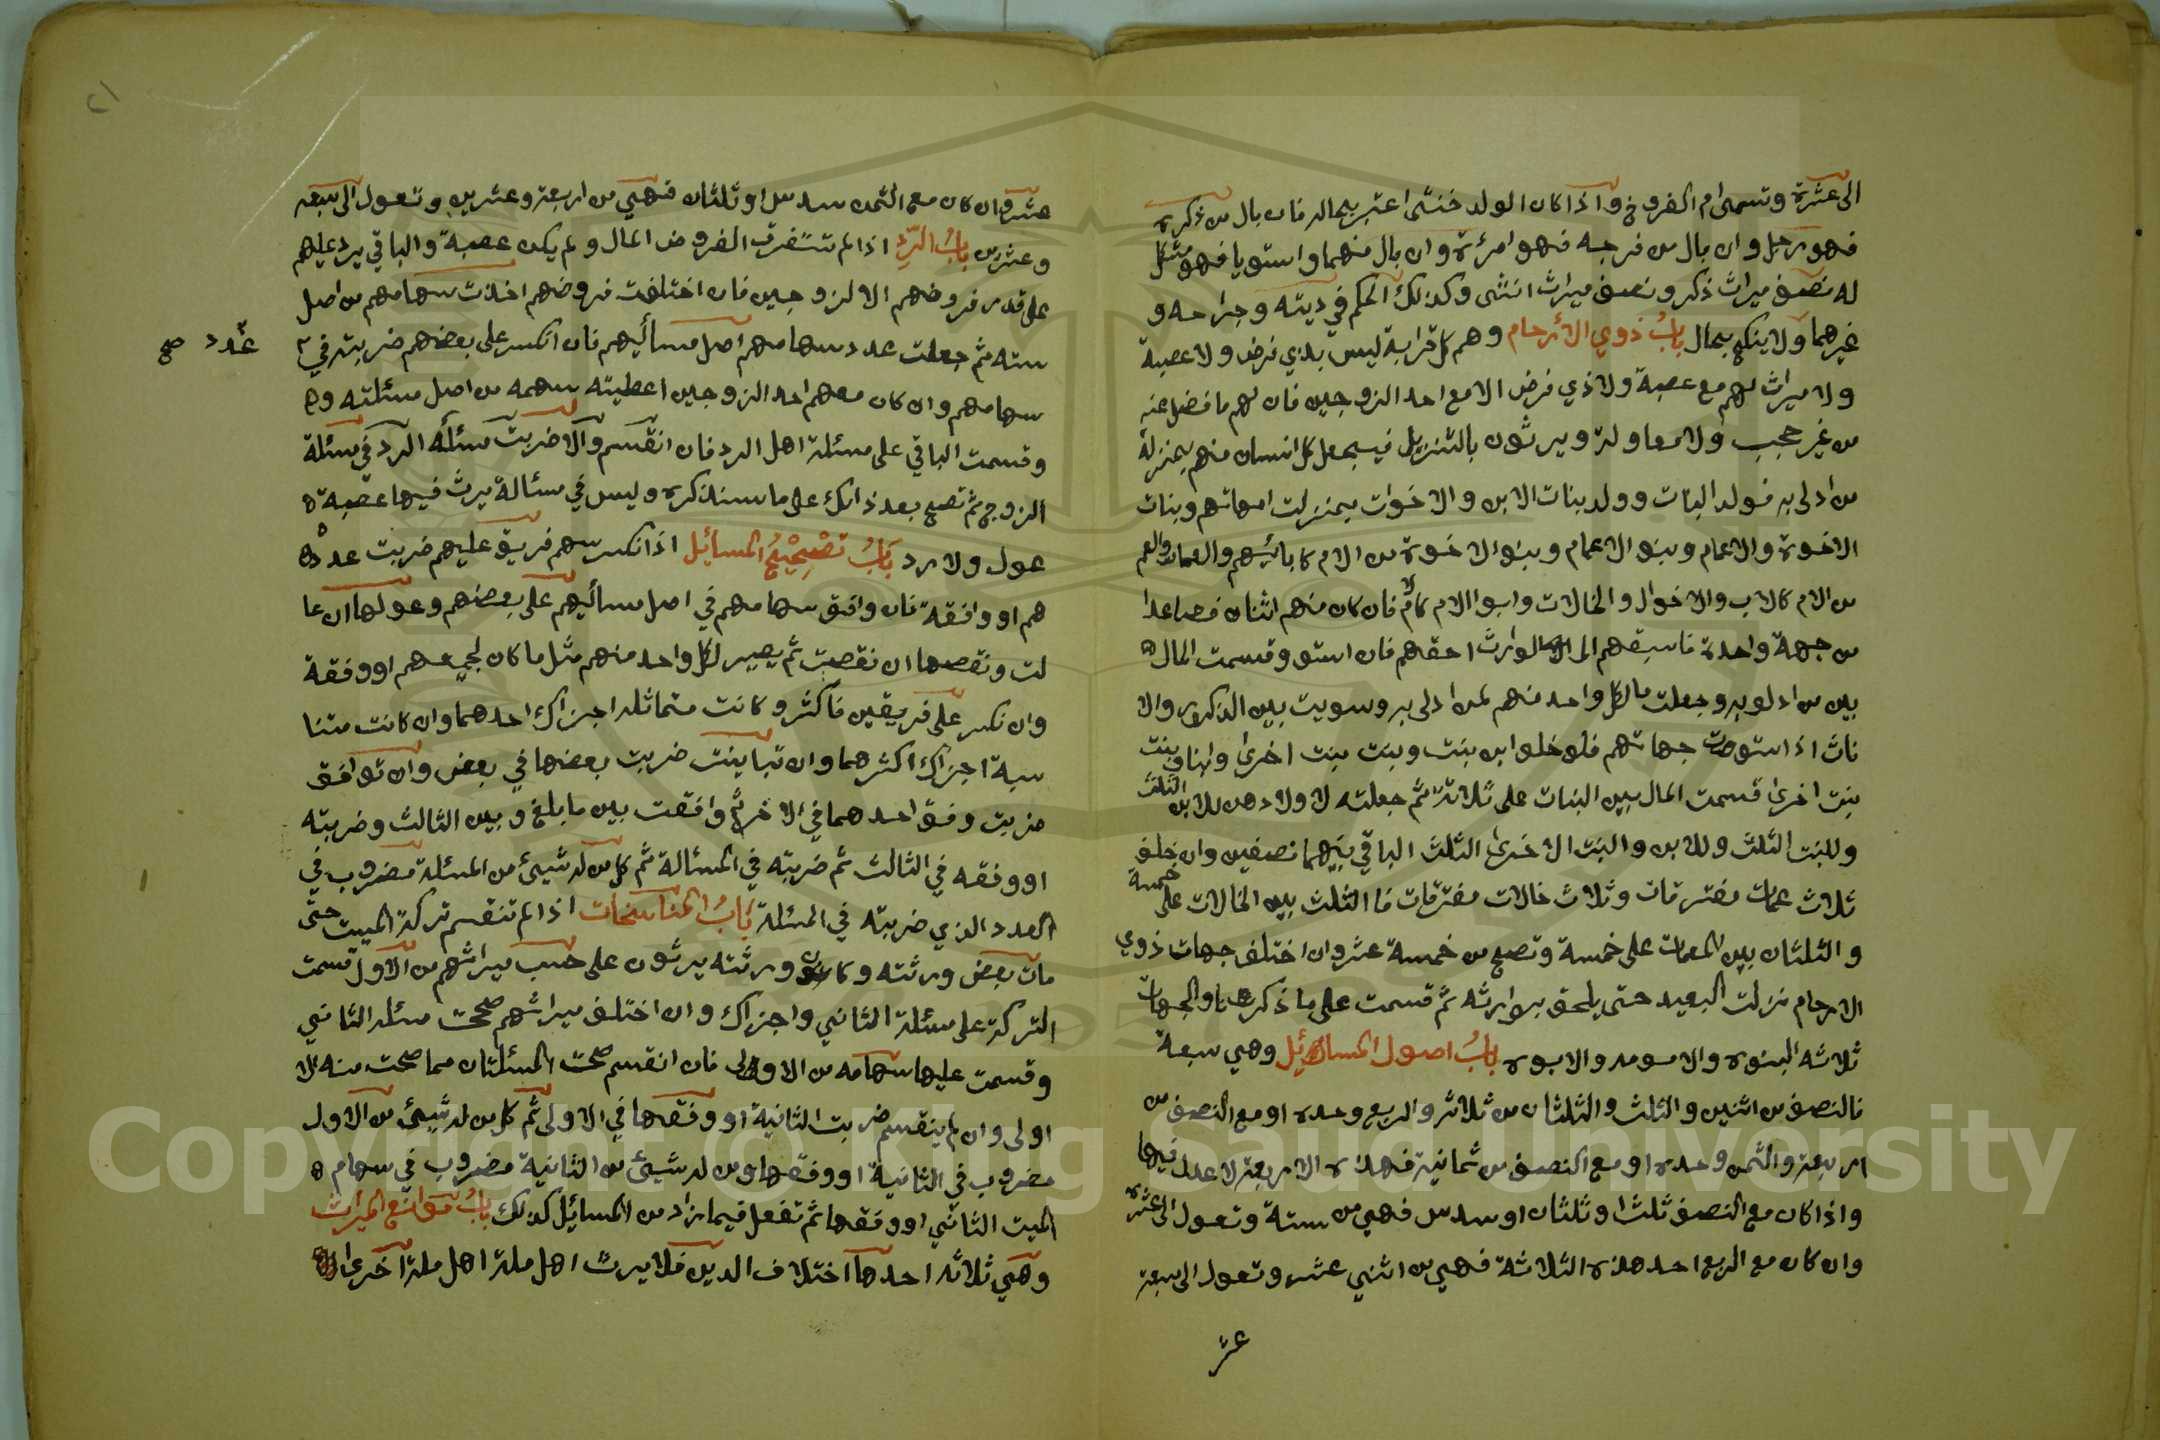 الى عشرة وتسمى ام الفروخ واذا كان الولد خنثى اعتبر بمباله فان بال من ذكره
فهو رجل وان بال من فرجه فهو امرئة وان بال منهما واستويا فهو مشكل
له نصف ميراث ذكر ونصف ميراث انثى وكذلك الحكم في ديته وجراحه و
غيرهما ولا ينكح بحال باب ذوي الأرحام وهم كل قرابة ليس بذي فرض ولا عصبة
ولا ميراث لهم مع عصبة ولا ذي فرض الا مع احد الزوجين فان لهم ما فضل عنه
من غير حجب ولا معاولة ويرثون بالتنزيل فيجعل كل انسان منهم بمنزلة
من ادلى به فولد البنات وولد بنات الابن والاخوات بمنزلت امهاتهم وبنات
الاخوة والاعمام وبنو الاعمام وبنو الاخوة من الام كابائيهم والعمات والعم
من الام كالاب والاخوال والخالات وابوا الام كالام فان كان منهم اثنان فصاعدا
من جهة واحدة فاسبقهم الى الوارث احقهم فان استوو قسمت المال
بين من ادلو به وجعلت ما لكل واحد منهم لمن ادلى به وسويت بين الذكور والا
ناث اذا استوت جهاتهم فلو خلوا ابن بنت وبنت بنت اخرى وابنا وبنت
بنت اخرى قسمت المال بين البنات على ثلاثة ثم جعلته لاولادهن للابن الثلث
وللبنت الثلث وللابن والبنت الاخرى الثلث الباقي بينهما نصفين وان خلف
ثلاث عمات مفترقات وثلاث خالات مفترقات فا الثلث بين الخالات على خمسة
والثلثان بين العمات على خمسة وتصح من خمسة عشر وان اختلف جهات ذوي
الارحام نزلت البعيد حتى يلحق بوارثه ثم قسمت على ما ذكرنا والجهات
ثلاثه البنوه والامومه والابوه باب اصول المسائيل وهي سبعة
فالنصف من اثنين والثلث والثلثان من ثلاثه والربع وحده او مع النصف من
اربعة والثمن وحده او مع النصف من ثمانية فهذه الاربعة لا عدل فيها
واذا كان مع النصف ثلث اوثلثان او سدس فهي من ستة وتعول الى عشرة
وان كان مع الربع احد هذه الثلاثة فهي من اثني عشر وتعول الى سبعة
عشر
٢١
عشر وان كان مع الثمن سدس اوثلثان فهي من اربعة وعشرين وتعول الى سبعه
وعشرين باب الرد اذا لم تستغرق الفروض المال ولم يكن عصبة والباقي يرد عليهم
على قدر فروضهم الا لزوجين فان اختلفت فروضهم اخذت سهامهم من اصل
سته ثم جعلت عدد سهامهم اصل مسأليهم فان انكسر على بعضهم ضربته في
عدد صح
سهامهم وان كان معهم احد الزوجين اعطيته سهمه من اصل مسئلته
وقسمت الباقي على مسئلة اهل الرد فان انقسم والا ضربت مسئلة الرد في مسئلة
الزوج ثم تصح بعد ذالك على ما سنذكره وليس في مسئالة يرث فيها عصبة
عول ولا رد باب تصحيح المسائيل اذا نكسر سهم فريق عليهم ضربت عدد
هم او وافقه فان وافق سهامهم في اصل مسأليهم على بعضهم وعولها ان عا
لت ونقصها ان نقصت ثم يصير لكل واحد منهم مثل ما كان لجميعهم او وفقة
وان نكسر على فريقين فاكثر وكانت متماثله اجزاك احدهما وان كانت متنا
سبة اجزاك اكثرهما وان تباينت ضربت بعضها في بعض وان توافق
ضربت وفق احدهما في الاخر ثم وافقت بين ما بلغ وبين الثالث وضربته
او وفقه في الثالث ثم ضربته في المسئالة ثم كل من له شيئ من المسئلة مضروب في
العدد الذي ضربته في المسئلة باب المناسخات اذا لم تنقسم تركة الميت حتى
مات بعض ورثته وكان ورثته يرثون على حسب ميراثهم من الاول قسمت
التركة على مسئلة الثاني واجزاك وان اختلف ميراثهم صححت مسئله الثاني
وقسمت عليها سهامه من الاولى فان انقسم صحت المسئلتان مما صحت منه الا
اولى وان لم ينقسم ضربت الثانية او وفقها في الاولى ثم كل من له شيئ من الاول
مضروب في الثانية او وفقها ومن له شيئ من الثانية مضروب في سهام
الميت الثاني او وفقها ثم تفعل فيما زاد من المسائيل كذلك باب موانع الميراث
وهي ثلاثه احدها اختلاف الدين فلا يرث اهل ملة اهل ملة اخرى
Copyright © King Saud University